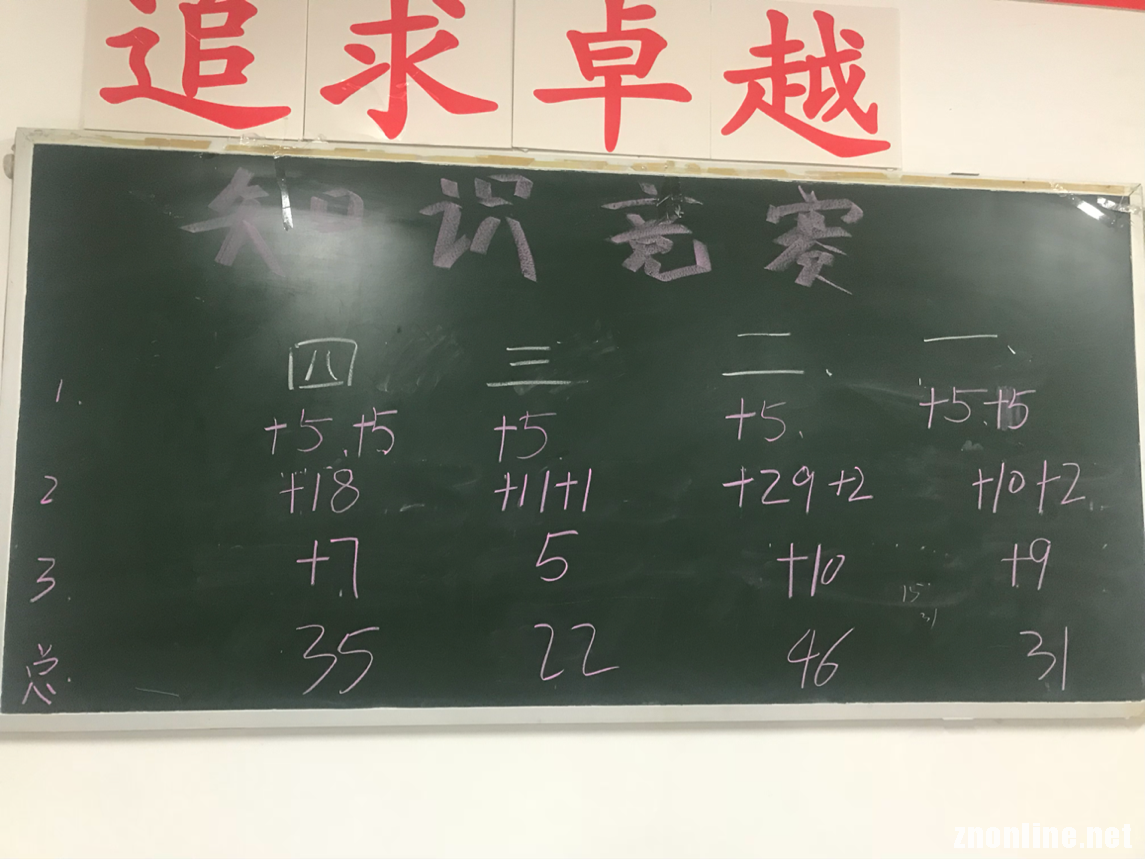 追求卓越
知识竞赛
四 三 二、 一、
1. +5、+5 +5 +5、 +5、+5
2 +18 +11+1 +29+2 +10+2
3. +7 5 +10 +9
总 35 22 46 31
znonline.net